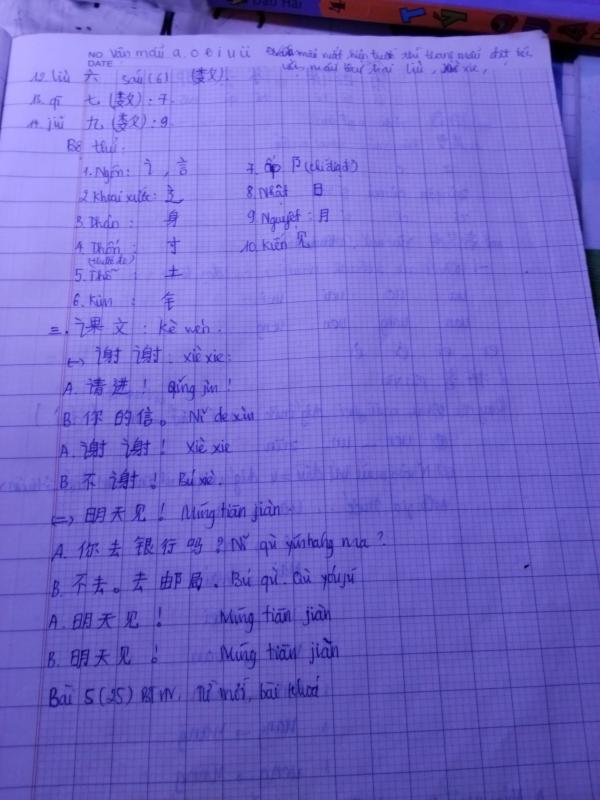 NO. Vần mẫu a, o, e, i, u, ü
DATE
12. liù 六 sáu (6)
13. qī 七 : 7.
14. jiǔ 九 : 9.
Bộ thủ.
1. Ngôn: 讠, 言 7. Ấp 阝
2. Khoái xước: 辶 8. Nhật 日
3. Thân : 身 9. Nguyệt : 月
4. Thốn : 寸 10. Kiến 见
(thước đo)
5. Thổ : 土
6. Kim : 钅
三. 课文 : Kè wén.
(一) 谢谢 : xiè xie:
A. 请进! Qǐng jìn!
B. 你的信。 Nǐ de xìn
A. 谢谢! Xiè xie
B. 不谢! Bú xiè.
(二) 明天见! Míng tiān jiàn
A. 你去银行吗? Nǐ qù yínháng ma?
B. 不去。去邮局. Bú qù. Qù yóujú
A. 明天见! Míng tiān jiàn
B. 明天见! Míng tiān jiàn
Bài 5 (25) BTVN. Từ mới, bài khoá